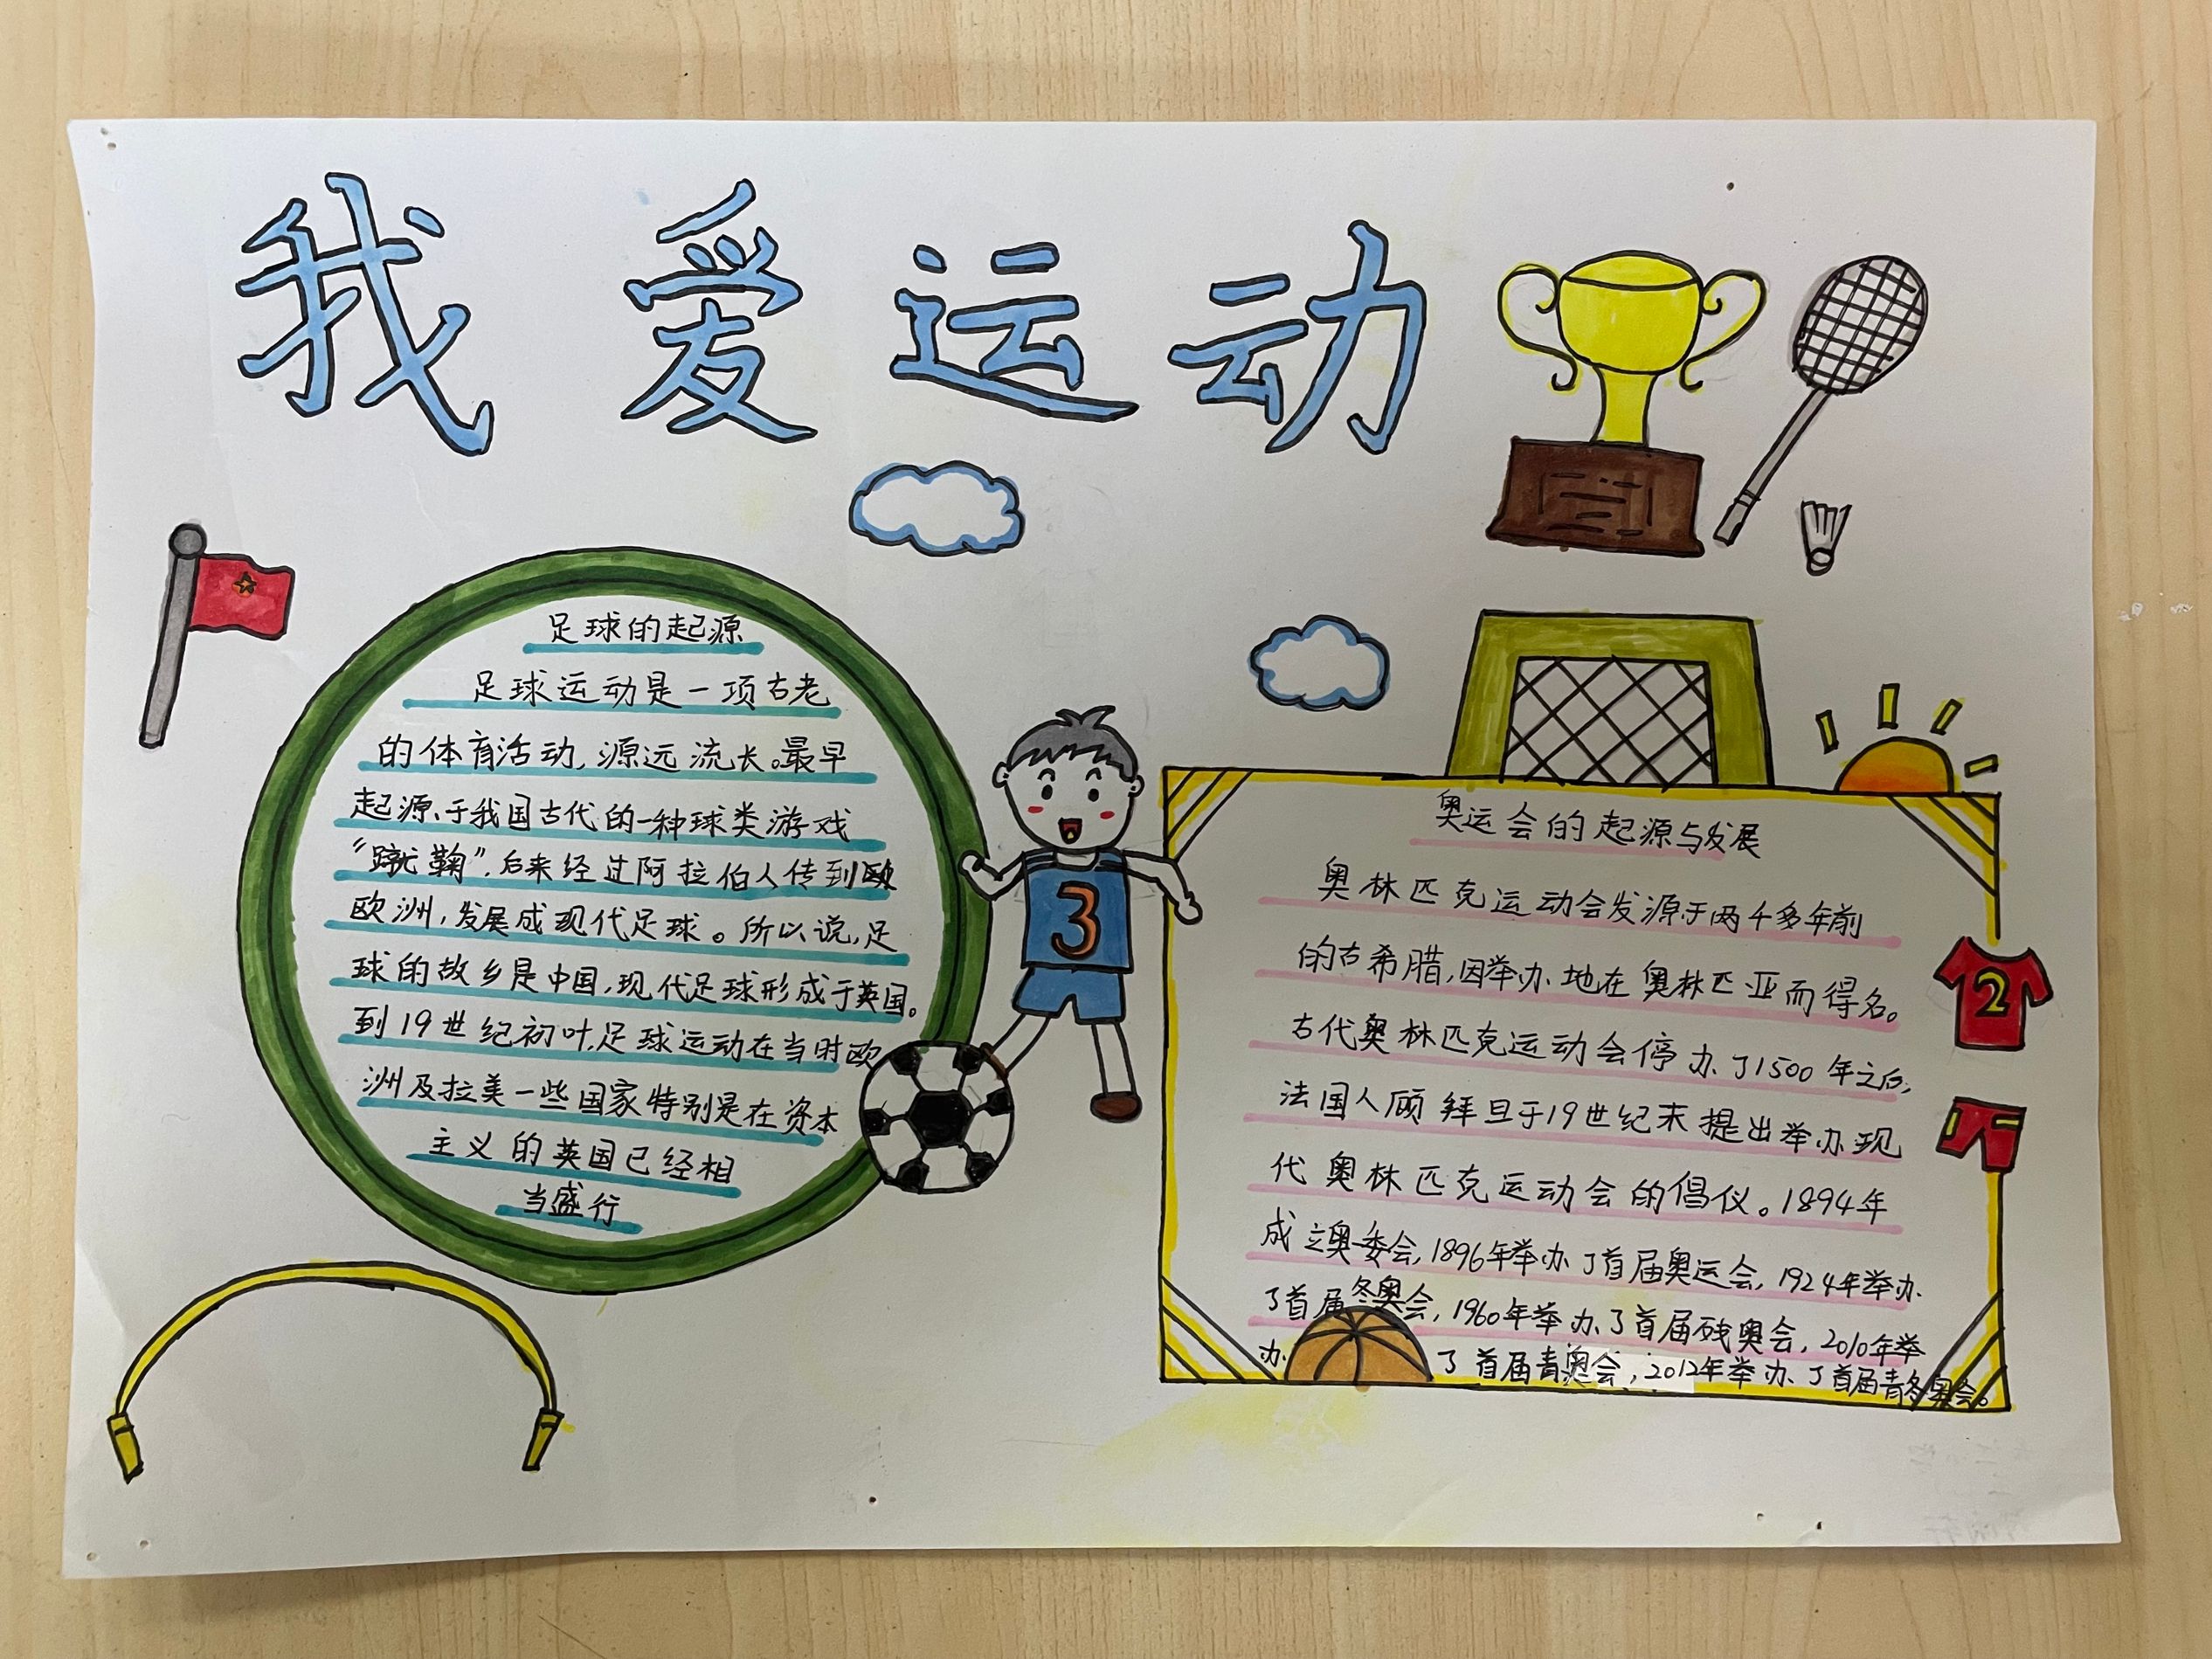 我爱运动
足球的起源
足球运动是一项古老
的体育活动,源远流长。最早
起源于我国古代的一种球类游戏
“蹴鞠”,后来经过阿拉伯人传到欧
欧洲,发展成现代足球。所以说,足
球的故乡是中国,现代足球形成于英国。
到19世纪初叶,足球运动在当时欧
洲及拉美一些国家特别是在资本
主义的英国已经相
当盛行
3
奥运会的起源与发展
奥林匹克运动会发源于两千多年前
的古希腊,因举办地在奥林匹亚而得名。
古代奥林匹克运动会停办了1500年之后,
法国人顾拜旦于19世纪末提出举办现
代奥林匹克运动会的倡仪。1894年
成立奥委会,1896年举办了首届奥运会,1924年举办
了首届冬奥会,1960年举办了首届残奥会,2010年举
办了首届青奥会,2012年举办了首届青冬奥会。
2